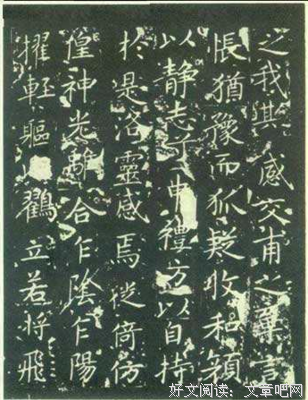 之我其感交甫之棄言
悵猶豫而狐疑收和顔
以静志兮申禮方以自持
扵是洛靈感焉徙倚仿
偟神光離合乍陰乍陽
擢輕軀鶴立若將飛
好文阅读：文章吧网